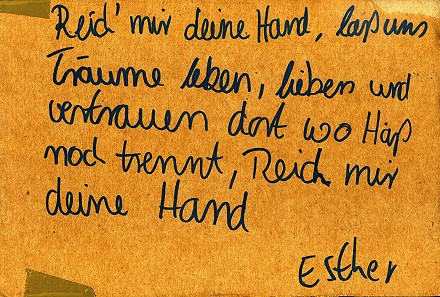 Reich' mir deine Hand, laß uns
Träume leben, lieben und
vertrauen dort wo Haß
noch trennt, Reich mir
deine Hand
Esther